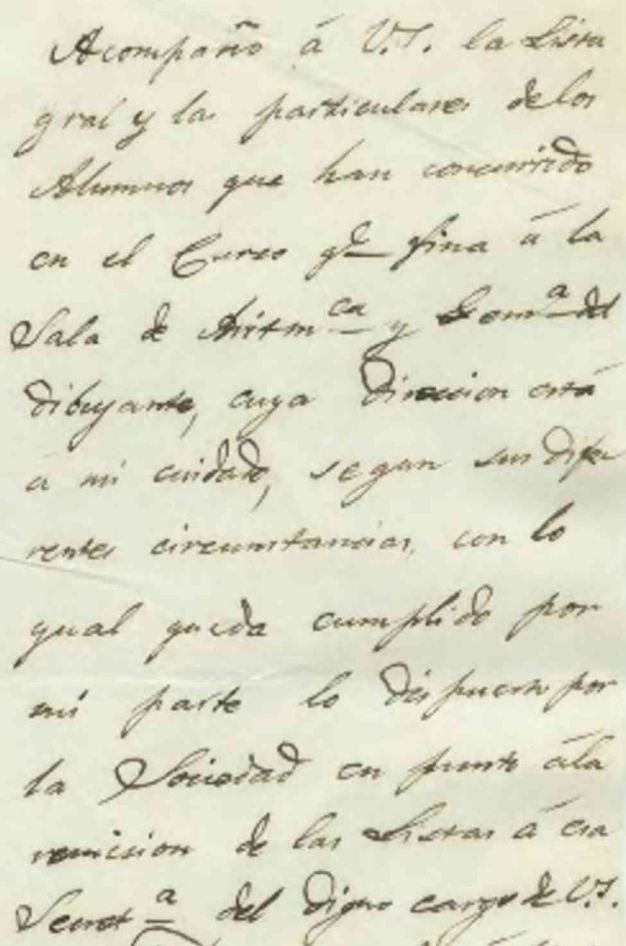 Acompaño á V.S. la Lista
gral y las particulares delos
Alumnos que han concurrido
en el Curso qe fina á la
Sala de Aritmca y Geoma del
dibujante, cuya Direccion está
a mi cuidado, segun sus dife
rentes circunstancias, con lo
qual queda cumplido por
mi parte lo dispuesto por
la Sociedad en punto ála
remision de las Listas á esa
Secreta del digno cargo de V.S.